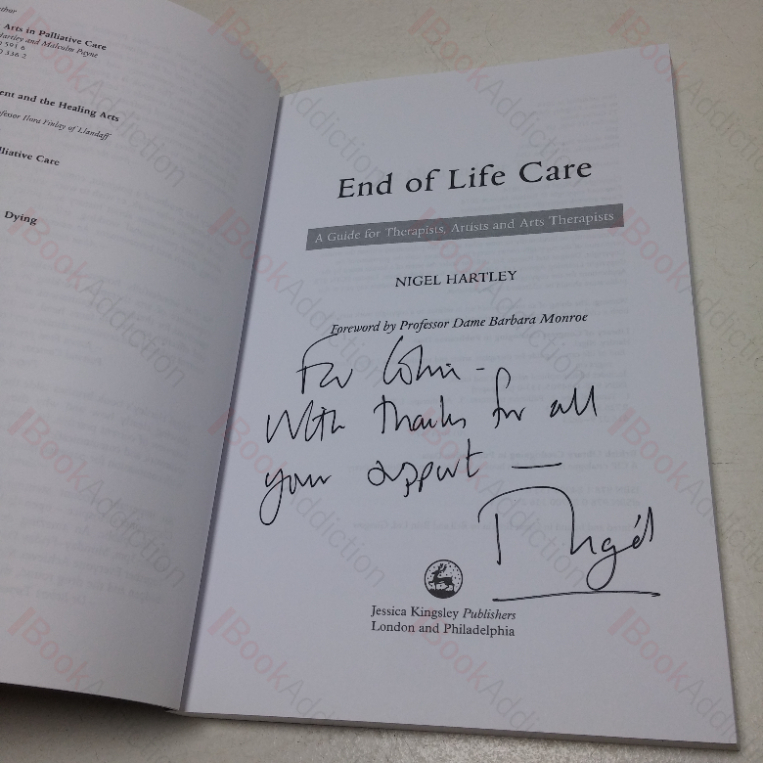 Arts in Palliative Care
Hartley and Malcolm Payne
591 6
336 2
ent and the Healing Arts
fessor Ilora Finlay of Llandaff
lliative Care
Dying
End of Life Care
A Guide for Therapists, Artists and Arts Therapists
NIGEL HARTLEY
Foreword by Professor Dame Barbara Monroe
For
With thanks for all
your support —
Nigel
Jessica Kingsley Publishers
London and Philadelphia
BookAddiction